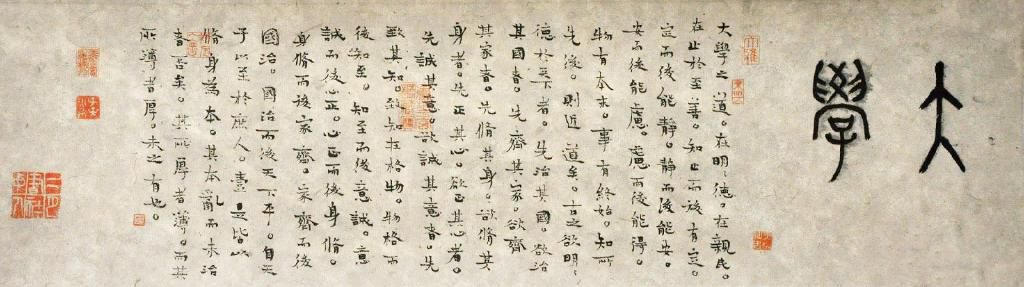 大學
大學之道。在明〻德。在親民。
在止於至善。知止而後有定。
定而後能靜。靜而後能安。
安而後能慮。慮而後能得。
物有本末。事有終始。知所
先後。則近道矣。古之欲明〻
德於天下者。先治其國。欲治
其國者。先齊其家。欲齊
其家者。先脩其身。欲脩其
身者。先正其心。欲正其心者。
先誠其意。欲誠其意者。先
致其知。致知在格物。物格而
後知至。知至而後意誠。意
誠而後心正。心正而後身脩。
身脩而後家齊。家齊而後
國治。國治而後天下平。自天
子以至於庶人。壹是皆以
脩身為本。其本亂而末治
者否矣。其所厚者薄。而其
所薄者厚。未之有也。